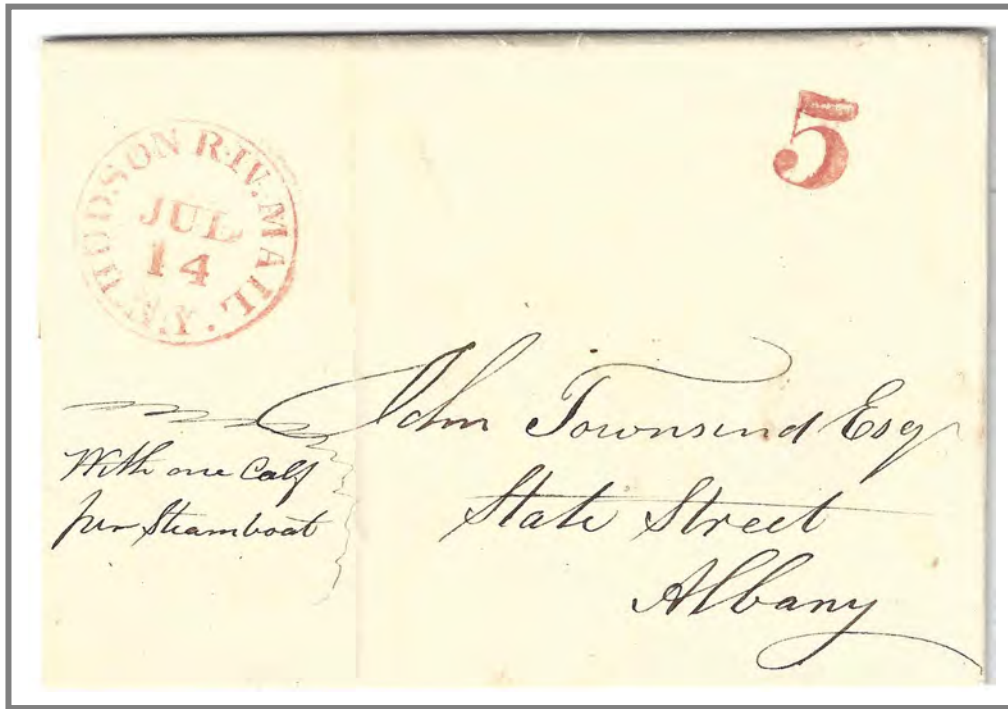 HUDSON RIV. MAIL. N.Y.
JUL
14
5
John Townsend Esq
State Street
Albany
With one Calf
per Steamboat